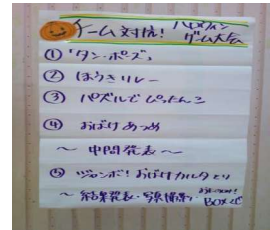 チーム対抗! ハロウィン
ゲーム大会
① 「タン・ポーズ」
② ほうきリレー
③ パズルでぴったんこ
④ おばけあつめ
〜 中間発表 〜
⑤ ジャンボ!おばけカルタとり
〜 結果発表・写真撮影
BOXへ